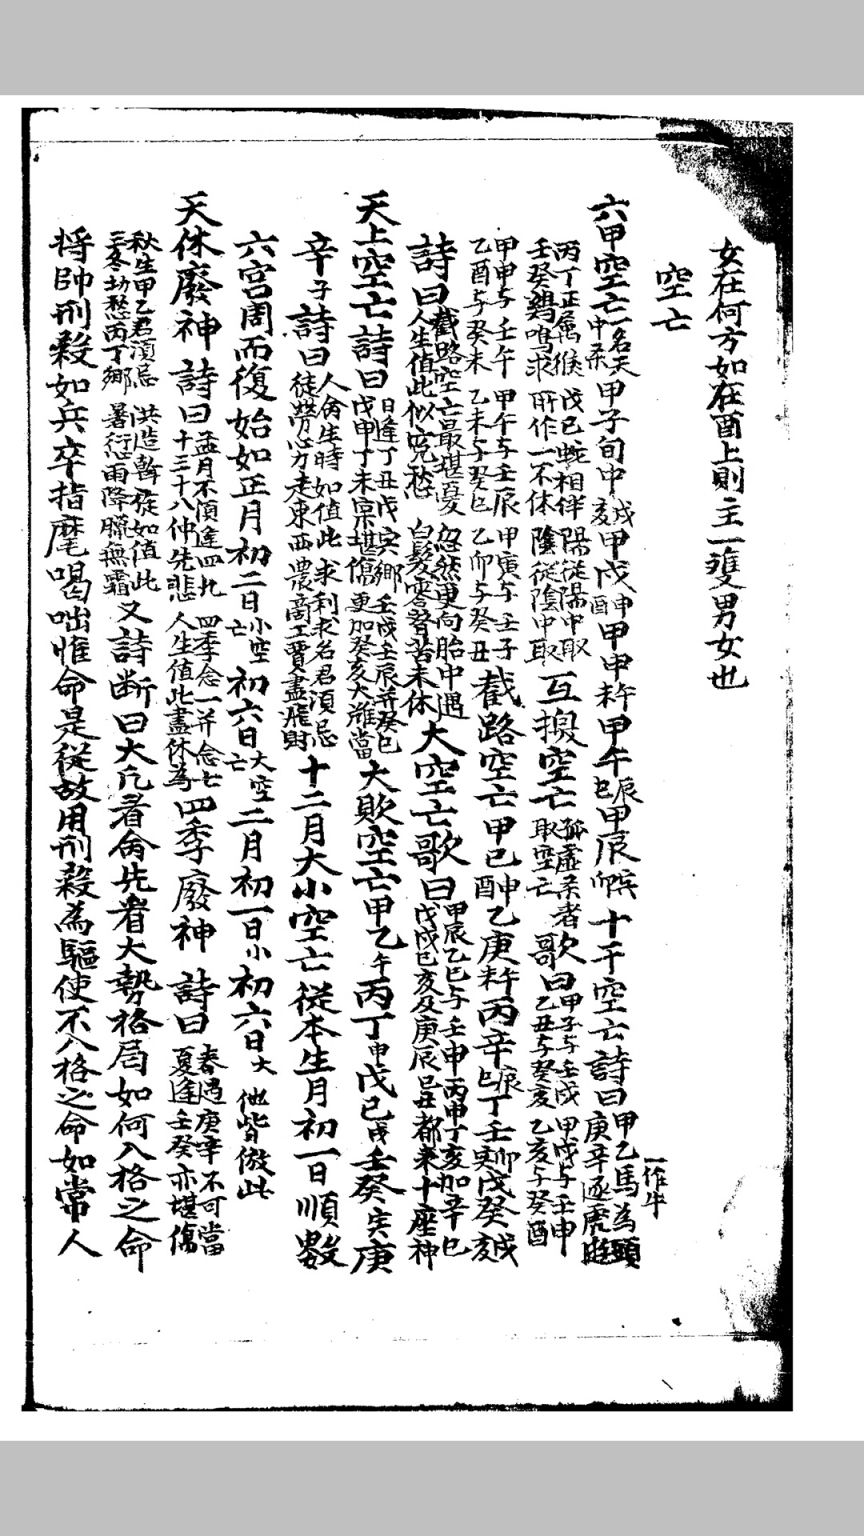 女在何方如在酉上則主一雙男女也
空亡
六甲空亡一名天中杀甲子旬中戌亥甲戌申酉甲申未午甲午辰巳甲辰寅卯十干空亡詩曰甲乙馬為頭一作牛庚辛逐虎遊
丙丁正属猴戊己蛇相伴壬癸鷄鳴求所作一不休陽從陽中取陰從陰中取互換空亡孤虚杀者取空亡歌曰甲子与壬戌甲戌与壬申乙丑与癸亥乙亥与癸酉
甲申与壬午甲午与壬辰甲寅与壬子乙酉与癸未乙未与癸巳乙卯与癸丑截路空亡甲己申酉乙庚午未丙辛辰巳丁壬寅卯戊癸戌亥
詩曰截路空亡最堪憂忽然更向胎中遇人生值此似寃愁白髮零替苦未休大空亡歌曰甲辰乙巳与壬申丙申丁亥加辛巳戊戌己亥及庚辰己丑都来十座神
天上空亡詩曰日逢丁丑戊寅鄉壬戌壬辰并癸巳戊申丁未禀堪傷更加癸亥大難當大敗空亡甲乙午丙丁申戊己戌壬癸寅庚
辛子詩曰人命生時如值此求利求名君須忌徒勞心力走東西農商工賈盡飛財十二月大小空亡從本生月初一日順數
六宫周而復始如正月初二日小空亡初六日大空亡二月初一日小初六日大他皆倣此
天休廢神詩曰孟月不須逢四九四季念一并念七十三十八仲先悲人生值此盡休為四季廢神詩曰春遇庚辛不可當夏逢壬癸亦堪傷
秋生甲乙君須忌三冬切愁丙丁鄉洪造斡旋如值此暑愆雨降臘無霜又詩断曰大凢看命先看大勢格局如何入格之命
将帥刑殺如兵卒指麾喝咄惟命是從故用刑殺為驅使不入格之命如常人